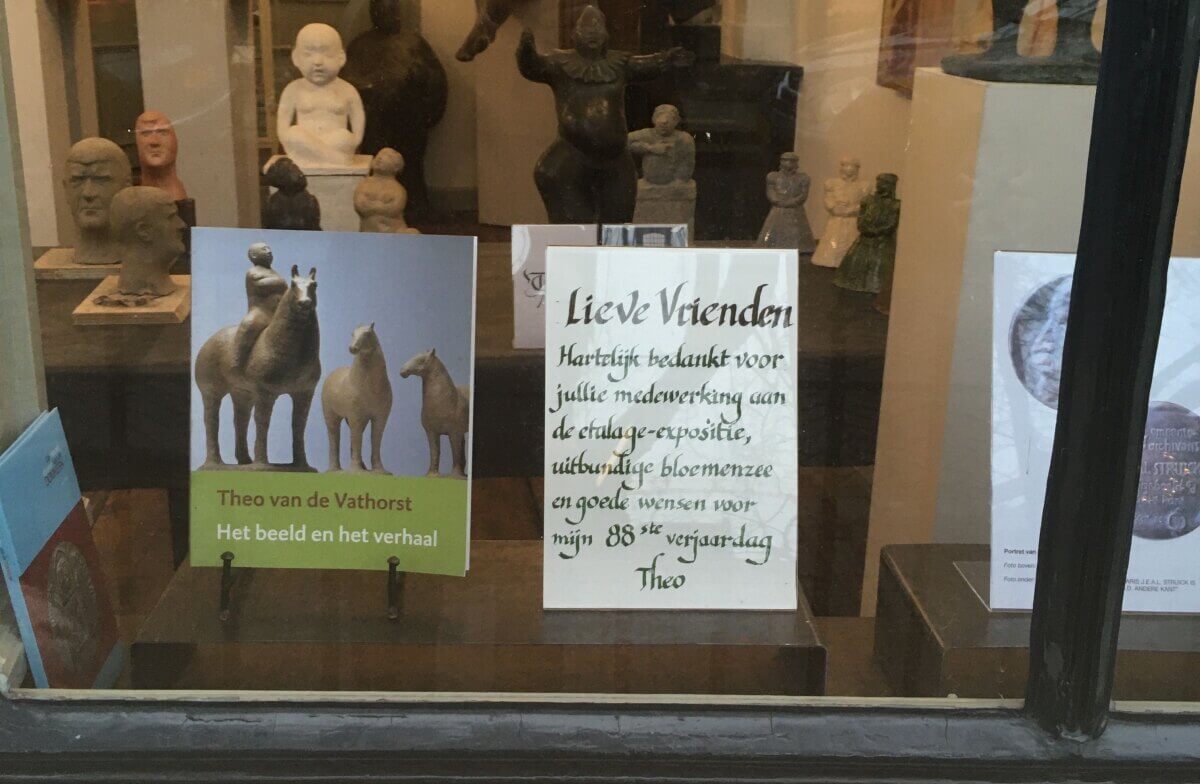 Theo van de Vathorst
Het beeld en het verhaal
Lieve Vrienden
Hartelijk bedankt voor
jullie medewerking aan
de etalage-expositie,
uitbundige bloemenzee
en goede wensen voor
mijn 88ste verjaardag
Theo
Portret van
Foto boven
Foto onder
ARIS J.E.A.L. STRUICK IS
ANDERE KANT"